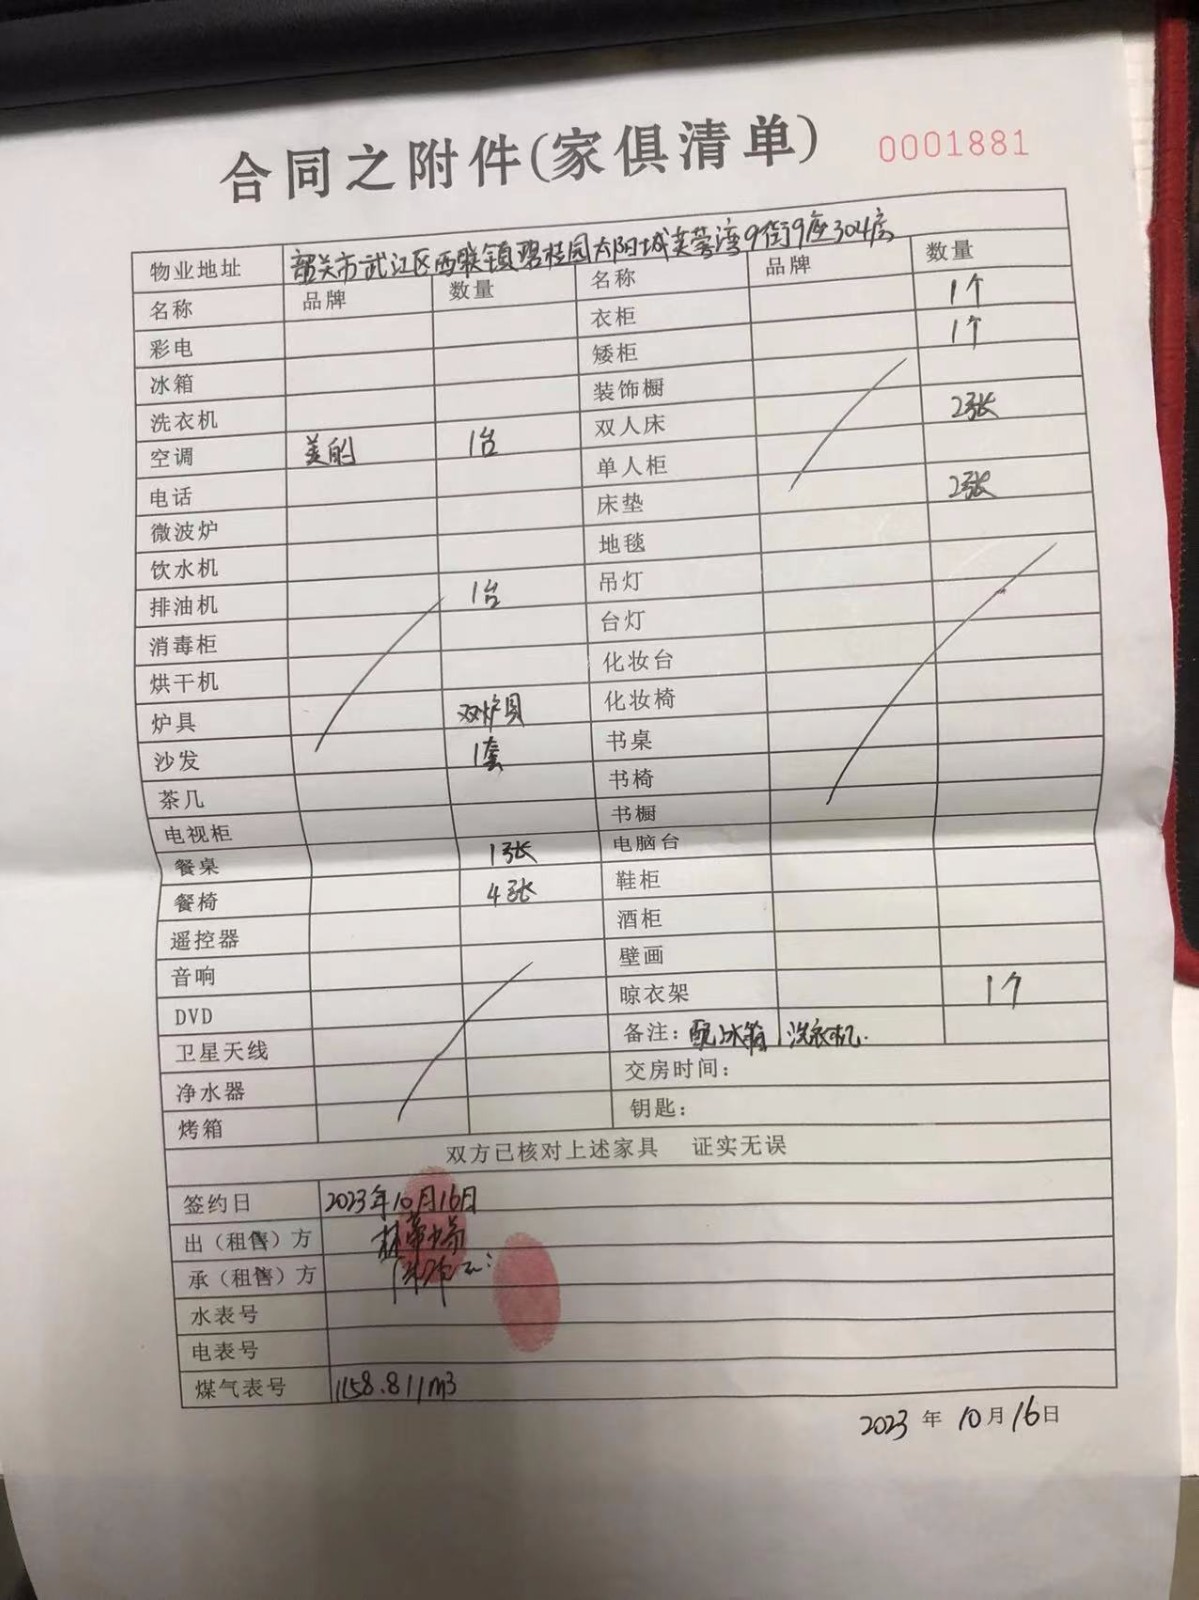 合同之附件(家俱清单) 0001881
物业地址 韶关市武江区西联镇碧桂园太阳城芙蓉湾9街9座304房
名称 品牌 数量 名称 品牌 数量
彩电 衣柜 1个
冰箱 矮柜 1个
洗衣机 装饰橱
空调 美的 1台 双人床 2张
电话 单人柜
微波炉 床垫 2张
饮水机 地毯
排油机 1台 吊灯
消毒柜 台灯
烘干机 化妆台
炉具 双炉具 化妆椅
沙发 1套 书桌
茶几 书椅
电视柜 书橱
餐桌 1张 电脑台
餐椅 4张 鞋柜
遥控器 酒柜
音响 壁画
DVD 晾衣架 1个
卫星天线 备注：配冰箱 洗衣机.
净水器 交房时间：
烤箱 钥匙：
双方已核对上述家具 证实无误
签约日 2023年10月16日
出（租售）方
承（租售）方
水表号
电表号
煤气表号 1158.811m3
2023年10月16日